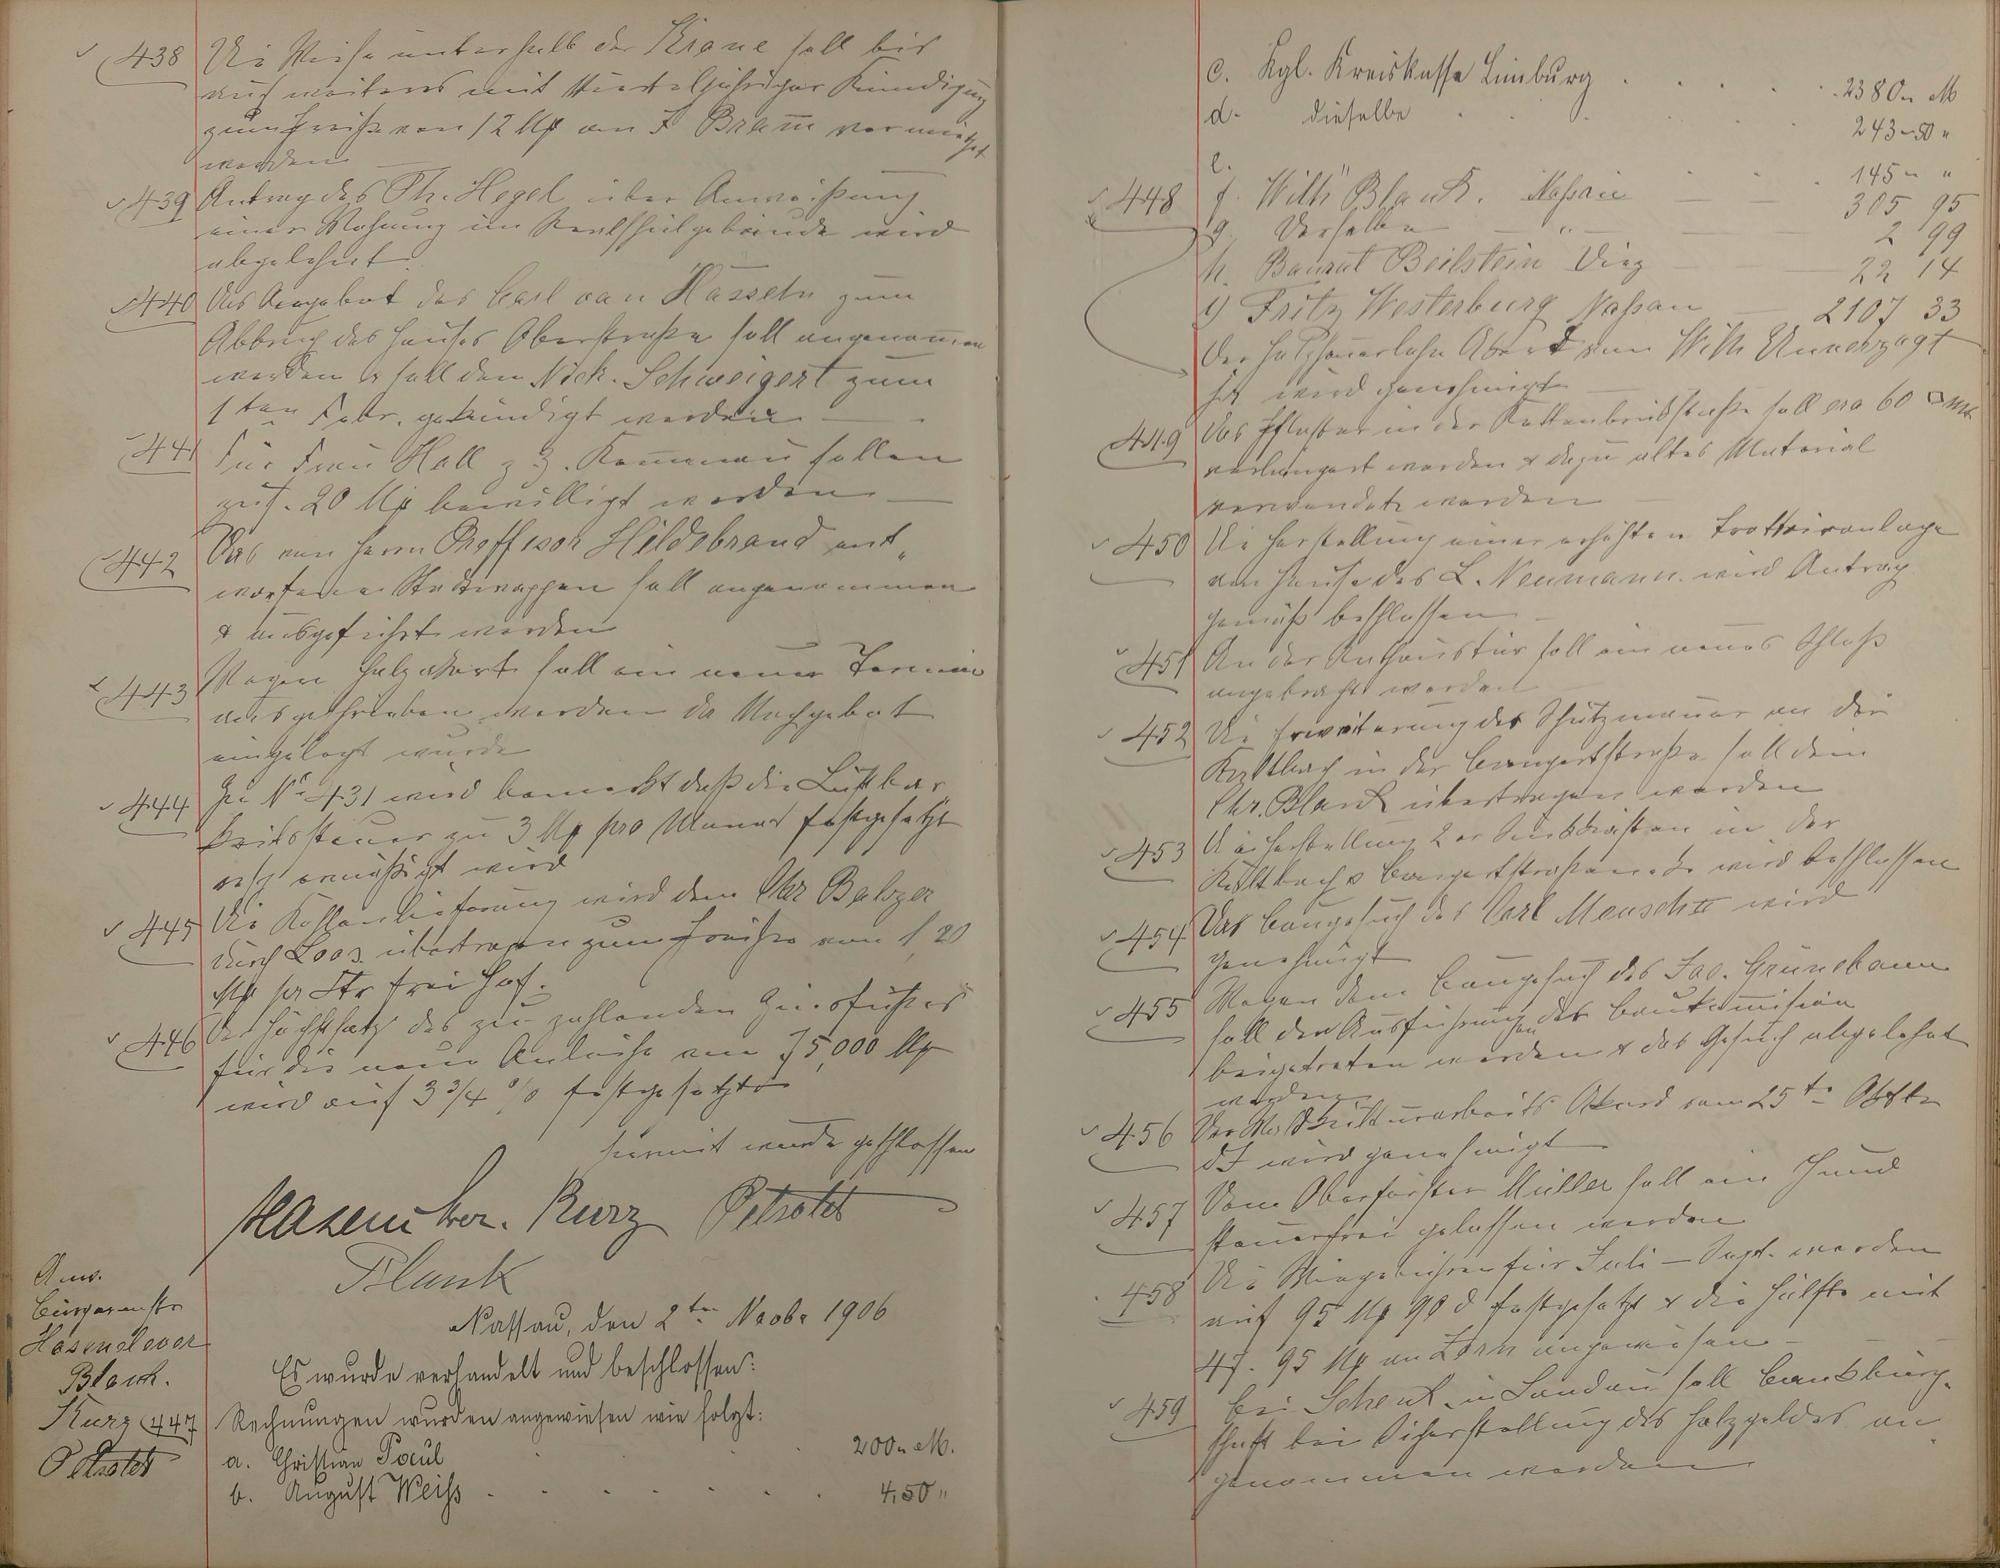 438 Die Wiese unterhalb der Krone soll bis
auf weiteres mit vierteljähriger Kündigung
zum Preiße von 12 Mk an F Bram̅ vermiethet
werden
439 Antrag des Ph. Hegel über Anweißung
einer Wohnung im Realschulgebäude wird
abgelehnt
440 Das Angebot des Carl van Hasseln zum
Abbruch des Hauses Oberstraße soll angenom̅en
werden & soll dem Nick. Schweigert zum
1ten Febr. gekündigt werden
441 Für Frau Holl z Z. sollen
20 Mk bewilligt werden
442 Das von Herrn Proffesor Hildebrand ent„
worfene Stadtwappen soll angenommen
& ausgeführt werden
443 Wegen soll ein neuer Termin
ausgeschrieben werden da Nachgebot
eingelegt wurde
444 Zu No 431 wird bemerkt daß die Lustbar
keitssteuer zu 3 Mk pro Monat festgesetzt
resp ermäßigt wird
445 Die Kohlenlieferung wird dem Chr Balzer
durch Loos übertragen zum Preiße von 1,20
Mk pr Ctr frei Hof.
446 Der Höchstsatz des zu zahlenden Zinsfußes
für die neue Anleihe von 75,000 Mk
wird auf 3 3/4 % festgesetzt
hiermit wurde geschlossen
Hasenclever. Kurz Petsoldt
Blank
Nassau, den 2ten Novbr 1906
Anw.
Bürgermstr
Hasenclever
Blank.
Kurz
Petsoldt
Es wurde verhandelt und beschlossen:
447 Rechnungen wurden angewiesen wie folgt:
a. Christian Paul 200„ M.
b. August Weiss 4,50 "
c. Kgl. Kreiskasse Limburg 2380„ M
d. dieselbe 243„50 "
e. 145„ "
f. Wilh Blank. Nassau 305 95
g. Derselbe " 2 99
h. Baurat Beilstein Diez 22 14
i) Fritz Westerburg Nassau 2107 33
448 Der Holzhauerlohn Akord von Wilh Unverzagt
wird genehmigt
449 Das Pflaster in der Kettenbrückstraße soll cra 60 □ mtr
verlängert werden & dazu altes Material
verwendet werden
450 Die Herstellung einer erhöhten Trottoiranlage
am Hause des L. Neumann wird Antrag
gemäß beschlossen
451 An der Rathaustür soll ein neues Schloß
angebracht werden
452 Die Erweiterung der Schutzmauer an der
Kaltbach in der Bongertstraße soll dem
Chr. Blank übertragen werden
453 Die Herstellung 2er Sinkkasten in der
Kaltbach & Bongertstraße wird beschlossen
454 Das Baugesuch des Carl Mensch II wird
genehmigt
455 Wegen dem Baugesuch des Jac. Grünebaum
soll den Ausführungen der Baukom̅ision
beigetreten werden & das Gesuch abgelehnt
werden
456 Der Kulturarbeits Akord vom 25ten Oktbr
d J wird genehmigt
457 Dem Oberförster Müller soll ein Hund
steuerfrei gelassen werden
458 Die Wiegebühren für Juli – Sept. werden
auf 95 Mk 90 d festgesetzt & die Hälfte mit
47. 95 Mk an Zorn angewiesen
459 Bei Schenk in Landau soll Bankbürg-
schaft bei Sicherstellung des Holzgeldes an
genommen werden